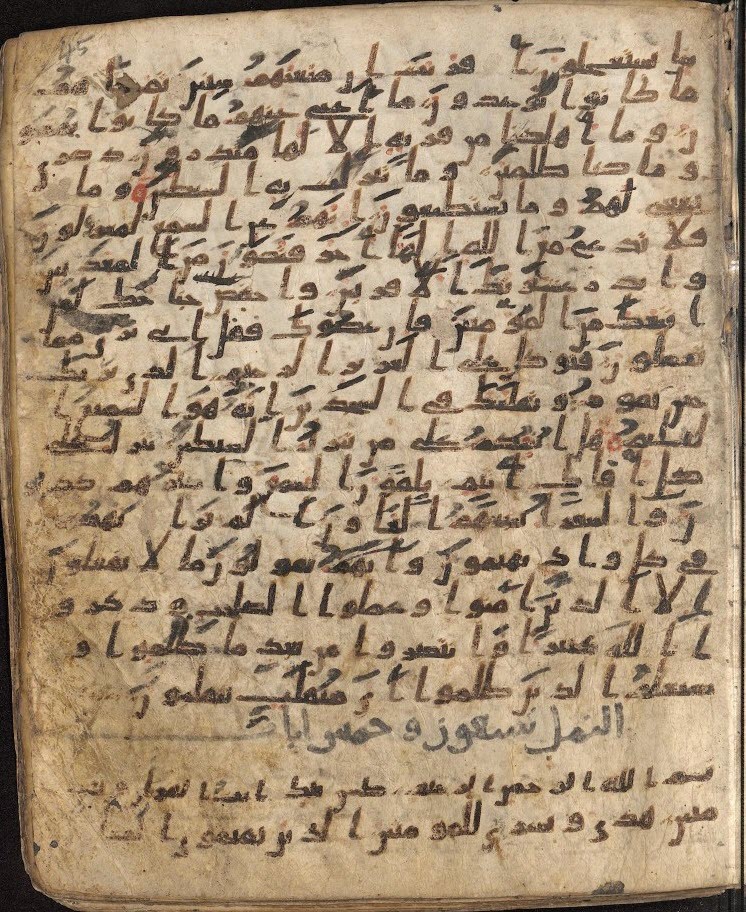 نا يستعجلون افريت ا ن متعنهم سنين ثم جا هم
ما كا نوا يوعدو ن ما ا غنى عنهم ما كا نوا يمتعو
ن و ما ا هلكنا من قرية ا لا لها منذرو ن ذ كر ى
و ما كنا ظلمين و ما تنزلت به ا لشيطين و ما
ينبغى لهم و ما يستطيعو ن ا نهم عن ا لسمع لمعزولو ن
فلا تد ع مع ا لله ا لها ا خر فتكو ن من ا لمعذبين
و ا نذ ر عشيرتك ا لا قر بين و ا خفض جنا حك لمن
ا تبعك من ا لمو منين فا ن عصوك فقل ا نى بر ى مما
تعملو ن فتو كل على ا لعز يز ا لر حيم ا لذ ى ير يك
حين تقو م و تقلبك فى ا لسجد ين ا نه هو ا لسميع ا
لعليم هل ا نبئكم على من تنز ل ا لشيطين تنز ل على
كل ا فا ك ا ثيم يلقو ن ا لسمع و ا كثر هم كذبو
ن و ا لشعر ا يتبعهم ا لغا و ن ا لم تر ا نهم
فى كل و ا د يهيمو ن و ا نهم يقو لو ن ما لا يفعلو ن
ا لا ا لذ ين ا منو ا و عملو ا ا لصلحت و ذ كر و
ا ا لله كثير ا و ا نتصر و ا من بعد ما ظلمو ا و
سيعلم ا لذ ين ظلمو ا ا ى منقلب ينقلبو ن
النمل تسعون و خمس ايات
بسم ا لله ا لر حمن ا لر حيم طس تلك ا يت ا لقر ا ن و كتب
مبين هد ى و بشر ى للمو منين ا لذ ين يقيمو ن ا لصلـ